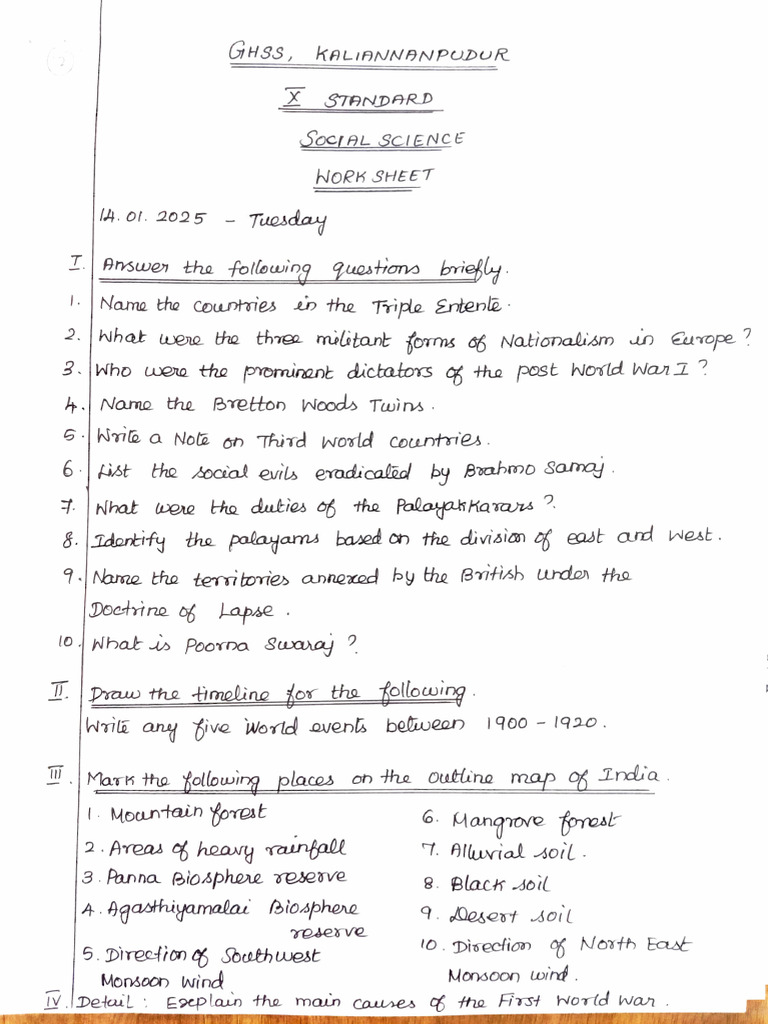 GHSS, KALIANNANPUDUR
X STANDARD
SOCIAL SCIENCE
WORK SHEET
14.01.2025 - Tuesday
I. Answer the following questions briefly.
1. Name the countries in the Triple Entente.
2. What were the three militant forms of Nationalism in Europe?
3. Who were the prominent dictators of the post World War I?
4. Name the Bretton Woods Twins.
5. Write a Note on Third World countries.
6. List the social evils eradicated by Brahmo Samaj.
7. What were the duties of the Palayakkarars?
8. Identify the palayams based on the division of east and west.
9. Name the territories annexed by the British under the
Doctrine of Lapse.
10. What is Poorna Swaraj?
II. Draw the timeline for the following.
Write any five World events between 1900 - 1920.
III. Mark the following places on the outline map of India.
1. Mountain forest
2. Areas of heavy rainfall
3. Panna Biosphere reserve
4. Agasthiyamalai Biosphere
reserve
5. Direction of Southwest
Monsoon wind
6. Mangrove forest
7. Alluvial soil.
8. Black soil
9. Desert soil
10. Direction of North East
Monsoon wind.
IV. Detail: Explain the main causes of the First World War.